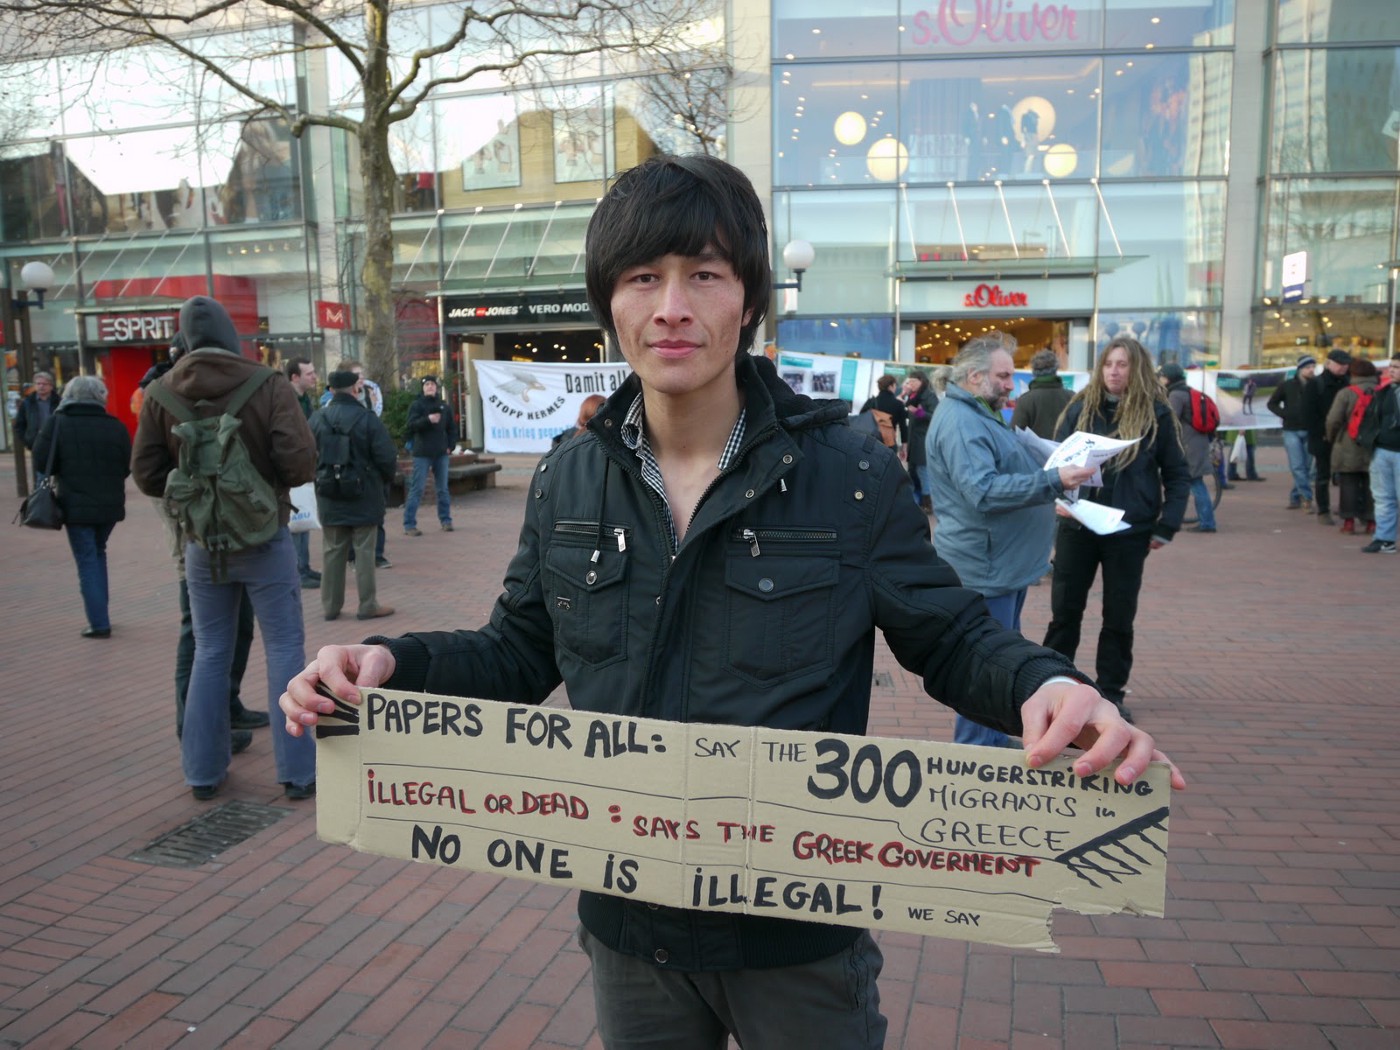 s.Oliver
s.Oliver
ESPRIT
M
JACK JONES VERO MOD
Damit all
STOPP HERMES
Kein Krieg gegen
PAPERS FOR ALL: SAY THE 300 HUNGERSTRiKING
MiGRANTS in
GREECE
iLLEGAL OR DEAD : SAYS THE GREEK GOVERMENT
NO ONE iS iLLEGAL! WE SAY